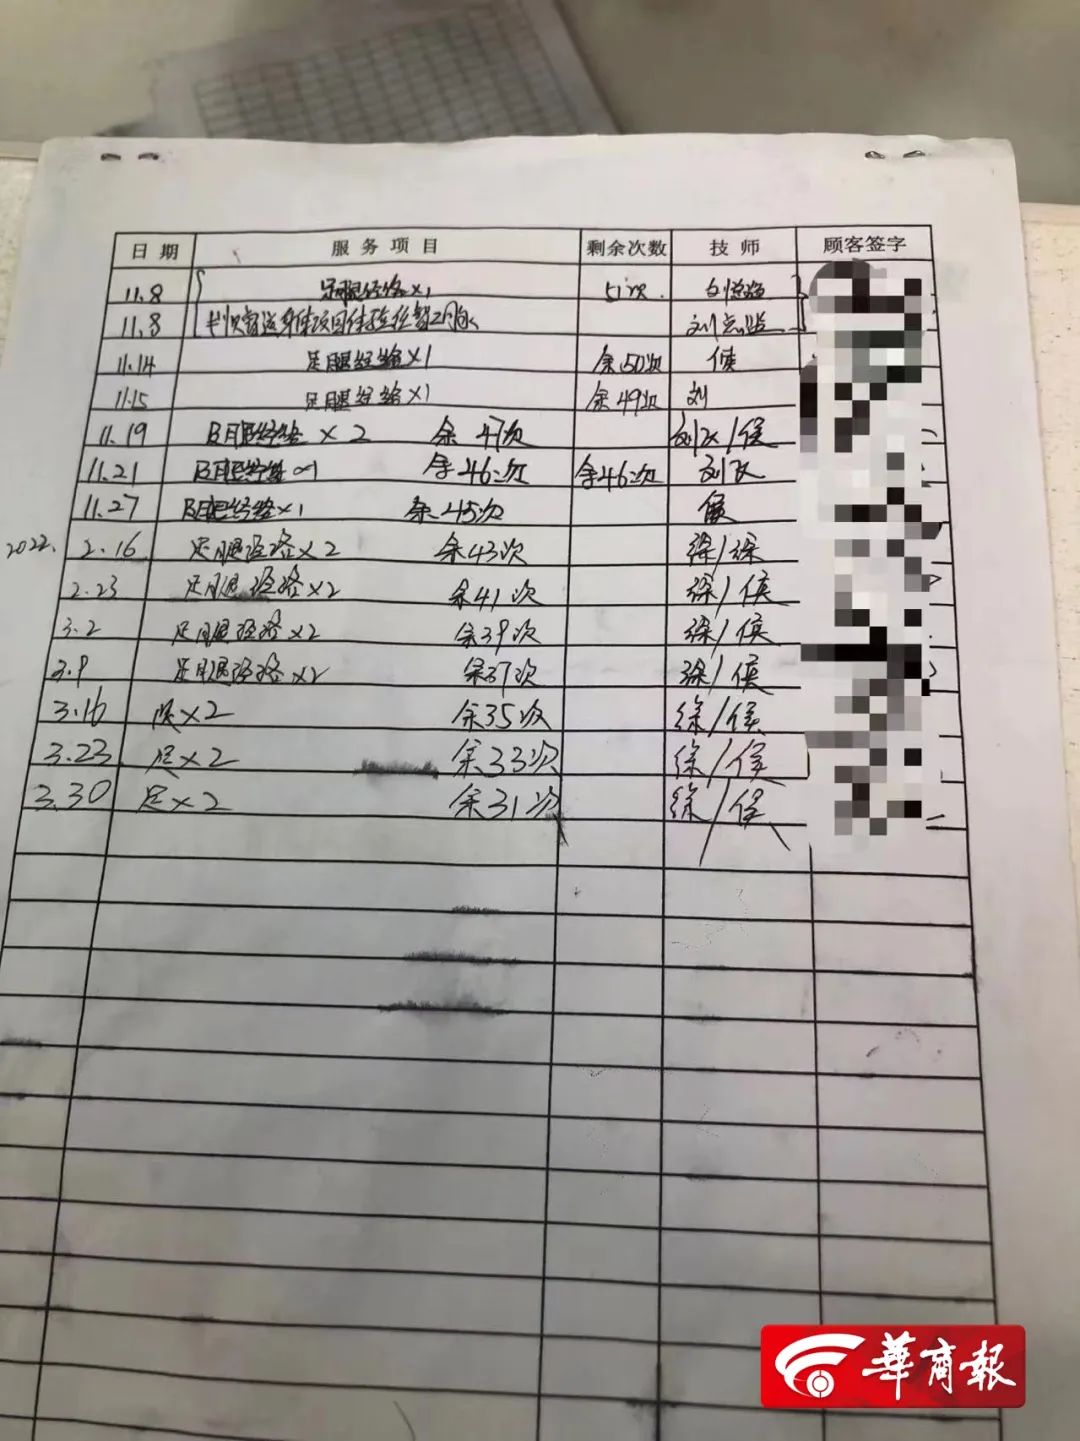 日期 服务项目 剩余次数 技师 顾客签字
11.8 足腿经络×1 51次 刘
11.8 刘
11.14 足腿经络×1 余50次 侯
11.15 足腿经络×1 余49次 刘
11.19 足腿经络×2 余47次 刘 /侯
11.21 足腿经络 余46次 余46次 刘
11.27 足腿经络×1 余45次 侯
2022. 2.16 足腿经络×2 余43次 徐/徐
2.23 足腿经络×2 余41次 徐/侯
3.2 足腿经络×2 余39次 徐/侯
3.9 足腿经络×2 余37次 徐/侯
3.16 足×2 余35次 徐/侯
3.23 足×2 余33次 徐/侯
3.30 足×2 余31次 徐/侯
華商報